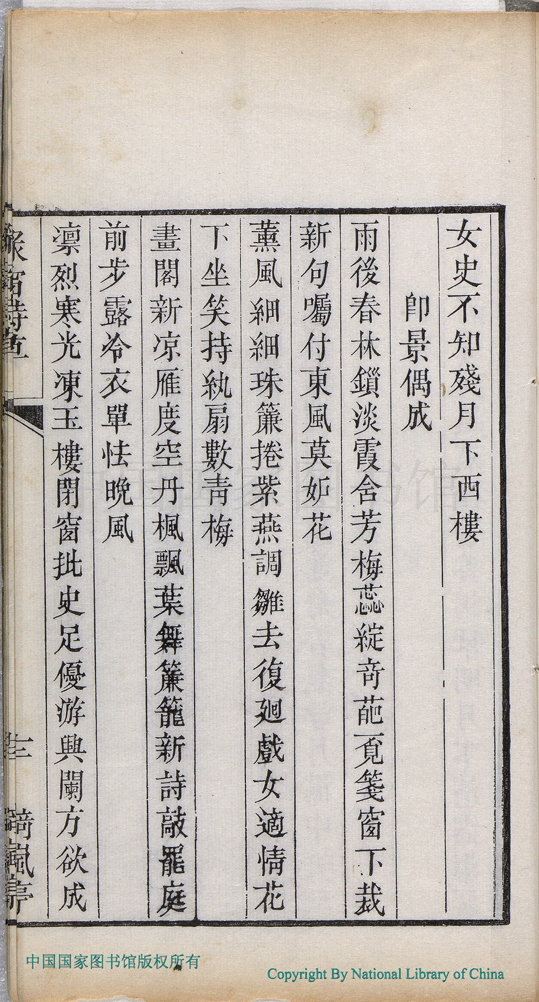 女史不知殘月下西樓
即景偶成
雨後春林鎖淡霞含芳梅蕊綻奇葩覓箋窗下裁
新句囑付東風莫妒花
薰風細細珠簾捲紫燕調雛去復廻戲女適情花
下坐笑持紈扇數青梅
畫閣新凉雁度空丹楓飄葉舞簾籠新詩敲罷庭
前步露冷衣單怯晚風
凛烈寒光凍玉樓閉窗批史足優游興闌方欲成
中国国家图书馆版权所有
Copyright By National Library of China